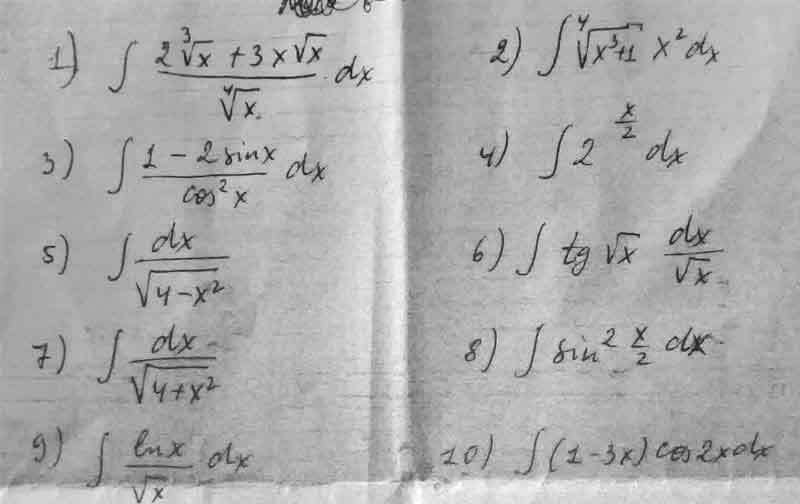 1) ∫ (2∛x + 3x√x)/∜x dx
2) ∫ ∜(x³+1) x² dx
3) ∫ (1 − 2 sin x)/cos² x dx
4) ∫ 2^(x/2) dx
5) ∫ dx/√(4−x²)
6) ∫ tg √x dx/√x
7) ∫ dx/√(4+x²)
8) ∫ sin² x/2 dx
9) ∫ ln x/√x dx
10) ∫ (1−3x) cos 2x dx